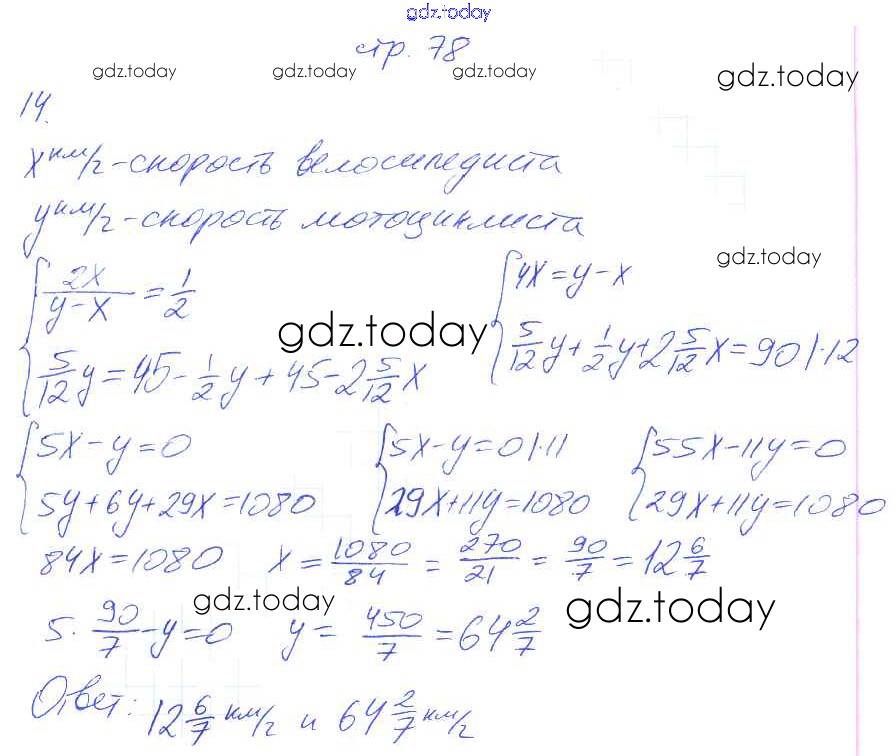 gdz.today
стр. 78
gdz.today gdz.today gdz.today gdz.today
14.
x км/г - скорость велосипедиста
y км/г - скорость мотоциклиста
gdz.today
{ 2x/(y-x) = 1/2 { 4x = y - x
gdz.today
{ 5/12 y = 45 - 1/2 y + 45 - 2 5/12 x { 5/12 y + 1/2 y + 2 5/12 x = 90 |·12
{ 5x - y = 0 { 5x - y = 0 |·11 { 55x - 11y = 0
{ 5y + 6y + 29x = 1080 { 29x + 11y = 1080 { 29x + 11y = 1080
84x = 1080 x = 1080/84 = 270/21 = 90/7 = 12 6/7
gdz.today gdz.today
5 · 90/7 - y = 0 y = 450/7 = 64 2/7
Ответ: 12 6/7 км/г и 64 2/7 км/г